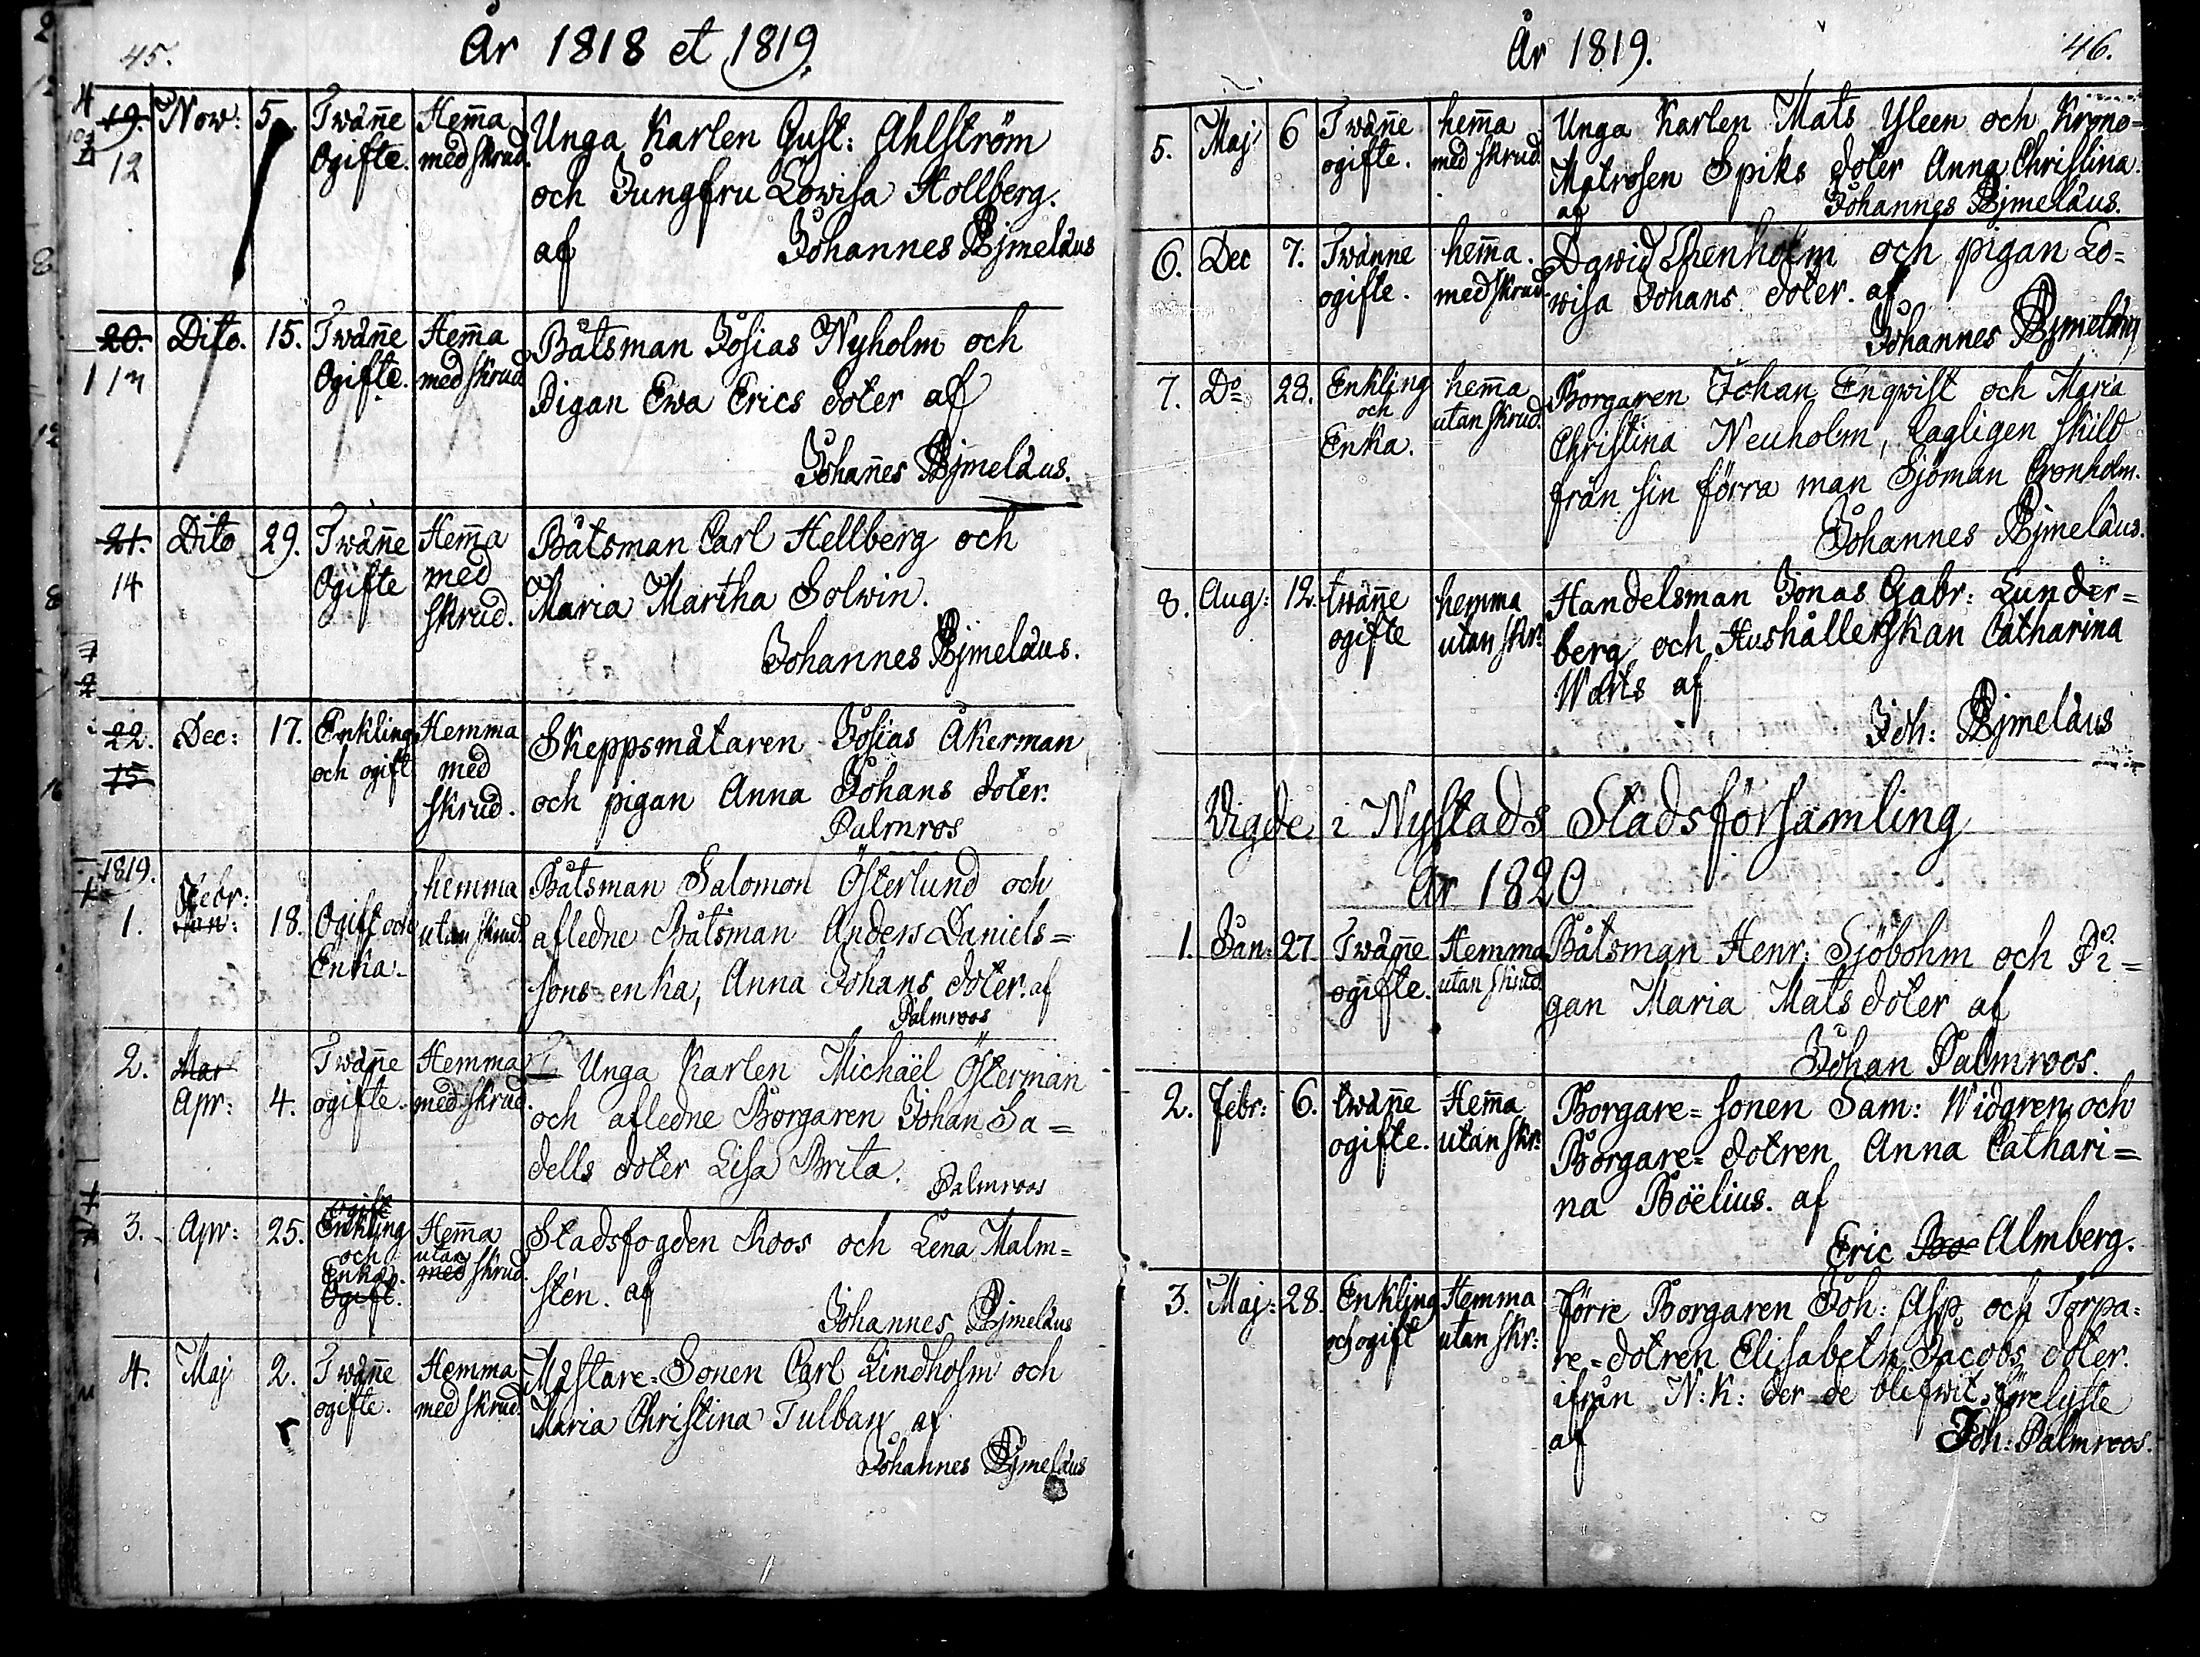 45.
År 1818 et 1819.
19. Nov: 5. Twäñe Hem̃a Unga Karlen Gust: Ahlström
12 Ogifte. med skrud. och Jungfru Lowisa Hollberg.
af Johannes Bjmeläus
20. Dito. 15. Twäñe Hem̃a Båtsman Josias Nyholm och
13 Ogifte. med skrud Pigan Ewa Erics doter af
Johañes Bjmeläus.
21. Dito 29. Twäñe Hem̃a Båtsman Carl Hellberg och
14 Ogifte med Maria Martha Solwin.
skrud.
Johannes Bjmeläus.
22. Dec: 17. Enkling Hemma Skeppsmätaren Josias Åkerman
15 och ogift med och pigan Anna Johans doter.
skrud. Palmros
1819. hemma Båtsman Salomon Österlund och
Febr:
1. Jan: 18. Ogift och utan skrud. afledne Båtsman Anders Daniels=
Enka. sons enka, Anna Johans doter. af
Palmroos
2. Mar Twäñe Hemma Unga Karlen Michaël Österman
Apr: 4. ogifte. med skrud. och afledne Borgaren Johan Sa=
dells doter Lisa Brita. Palmroos
Ogift
3. Apr: 25. Enkling Hem̃a Stadsfogden Roos och Lena Malm=
och utan
Enka. med skrud. stén. af
Ogift. Johannes Bjmeläus
4. Maj 2. Twäñe Hemma Mästare=Sonen Carl Lindholm och
ogifte. med skrud. Maria Christina Tulban af
Johannes Bjmeläus
År 1819. 46.
5. Maj 6 Twäñe hem̃a Unga Karlen Mats Yleen och Krono=
ogifte. med skrud. Matrosen Spiks doter Anna Christina.
af Johannes Bjmeläus.
6. Dec 7. Twänne hem̃a. Dawid Thenholm och pigan Lo=
ogifte. med skrud. wisa Johans doter. af
Johannes Bjmeläus
7. Do 28. Enkling hem̃a Borgaren Johan Enqwist och Maria
och utan skrud. Christina Neuholm, lagligen skild
Enka. från sin förra man Sjöman Cronholm.
Johannes Bjmeläus.
8. Aug: 12. twäñe hemma Handelsman Jonas Gabr: Lunder=
ogifte utan skr: berg och Hushållerskan Catharina
Warts af
Joh: Bjmeläus
Vigde i Nystads Stadsförsamling
År 1820.
1. Jan: 27. Twäñe Hemma Båtsman Henr: Sjöbohm och Pi=
ogifte. utan skrud. gan Maria Mats doter af
Johan Palmroos.
2. Febr: 6. twäñe Hem̃a Borgare=sonen Sam: Widgren och
ogifte. utan skr: Borgare=dotren Anna Cathari=
na Böelius. af
Eric Bo Almberg.
3. Maj: 28. Enkling Hemma Förre Borgaren Joh: Asp och Torpa=
och ogift utan skr: re=dotren Elisabeth Jacobs doter.
ifrån N:K: der de blifwit förelyste
af Joh: Palmroos.